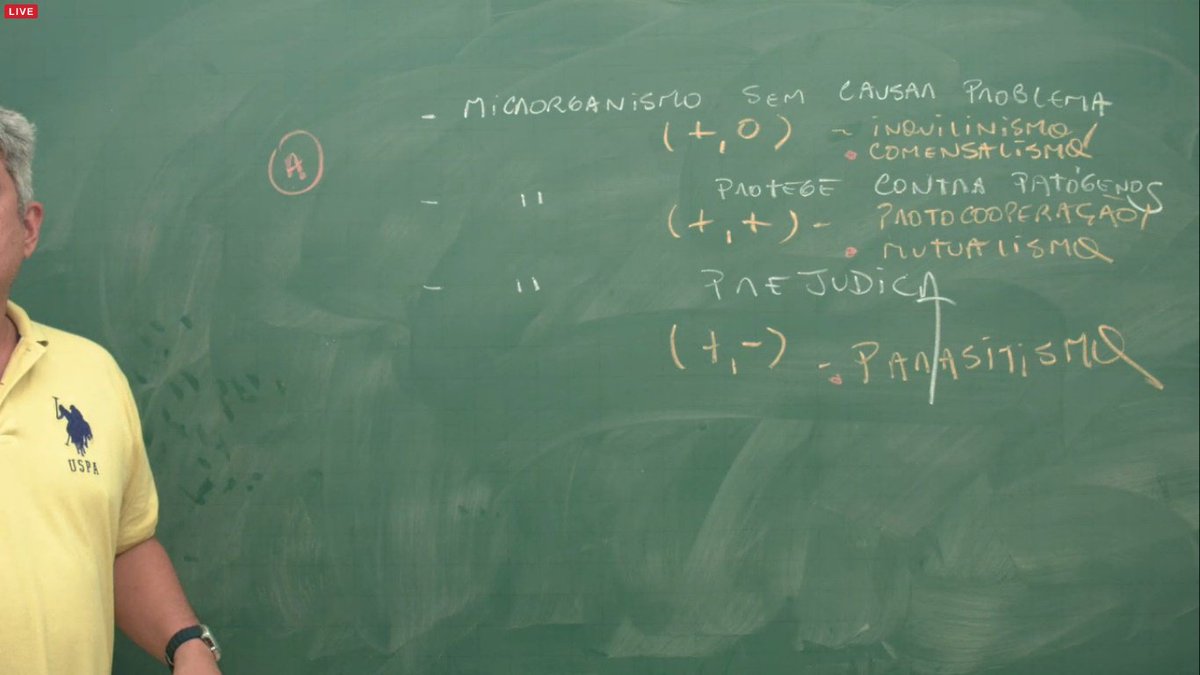 LIVE
- MICRORGANISMO SEM CAUSAR PROBLEMA
(+,0) - INQUILINISMO/
• COMENSALISMO
A
- " PROTEGE CONTRA PATÓGENOS
(+,+) - PROTOCOOPERAÇÃO/
• MUTUALISMO
- " PREJUDICA
(+,-) - • PARASITISMO
USPA